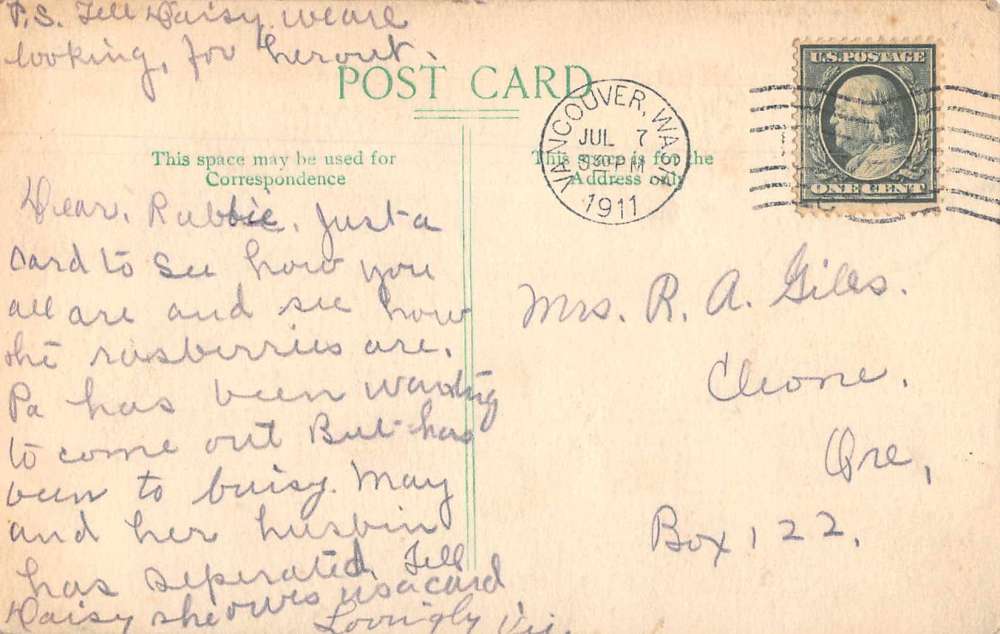 P.S. Tell Daisy we are
looking, for her out.
POST CARD
This space may be used for
Correspondence
This space is for the
Address only
VANCOUVER, WASH.
JUL 7
530 PM
1911
U.S. POSTAGE
ONE CENT
Dear, Rubbie, Just a
card to see how you
all are and see how
the rasberries are.
Pa has been wanting
to come out But has
been to buisy. May
and her husbin
has seperated. Tell
Daisy she owes us a card
Lovingly
Mrs. R. A. Giles.
Cleone.
Ore,
Box 122,